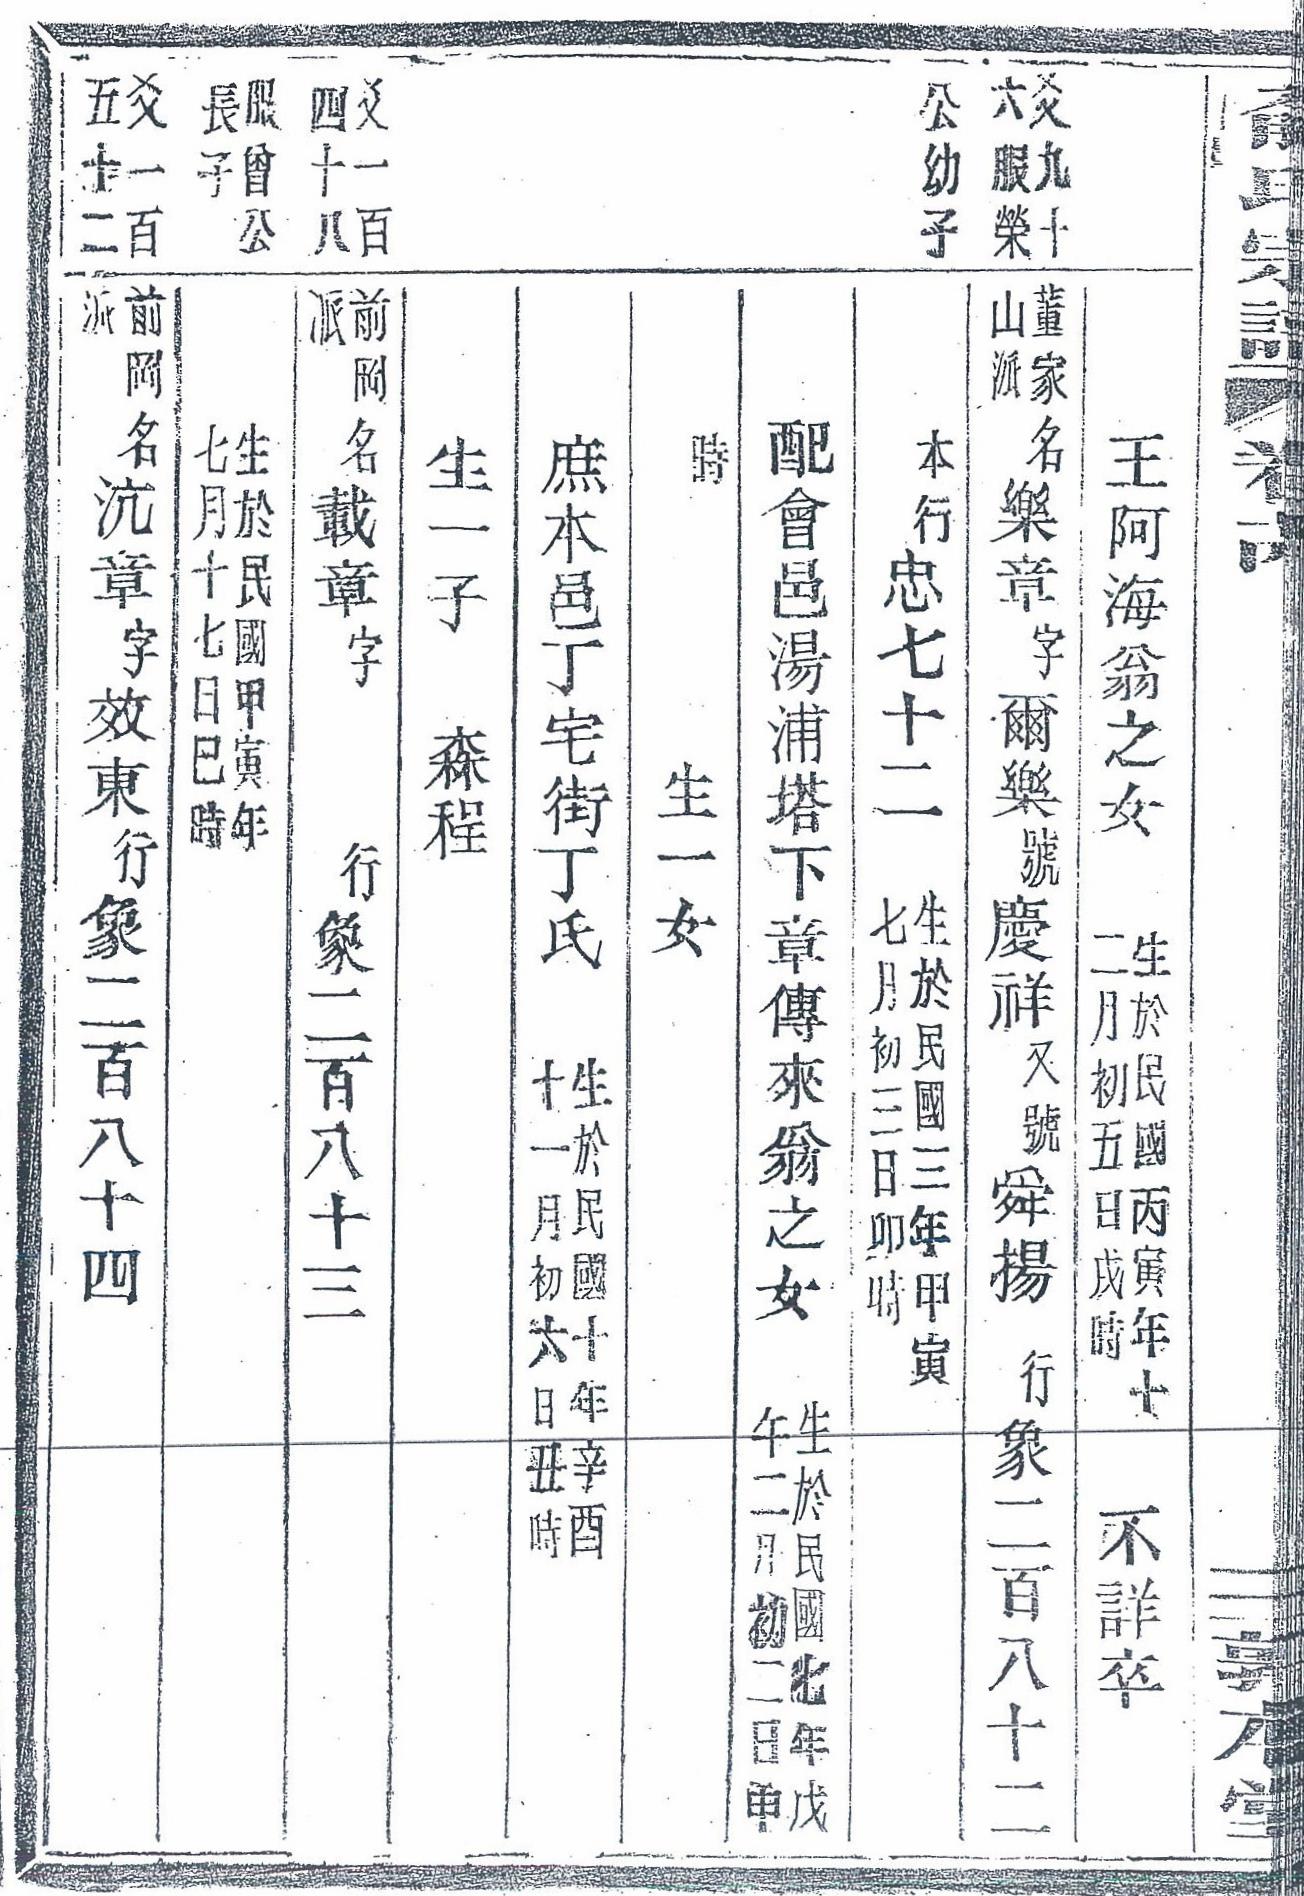 氏宗譜 卷六
王阿海翁之女 生於民國丙寅年十
二月初五日戌時 不詳卒
爻九十
六服榮
公幼子
董家
山派
名樂章字爾樂號慶祥又號舜揚 行象二百八十二
本行忠七十二 生於民國三年甲寅
七月初三日卯時
配會邑湯浦塔下章傳來翁之女 生於民國七年戊
午二月初二日申
時 生一女
庶本邑丁宅街丁氏 生於民國十年辛酉
十一月初六日丑時
生一子 森程
爻一百
四十八
服曾公
長子
前岡
派
名載章字 行象二百八十三
生於民國甲寅年
七月十七日巳時
爻一百
五十二
前岡
派
名沆章字效東行象二百八十四